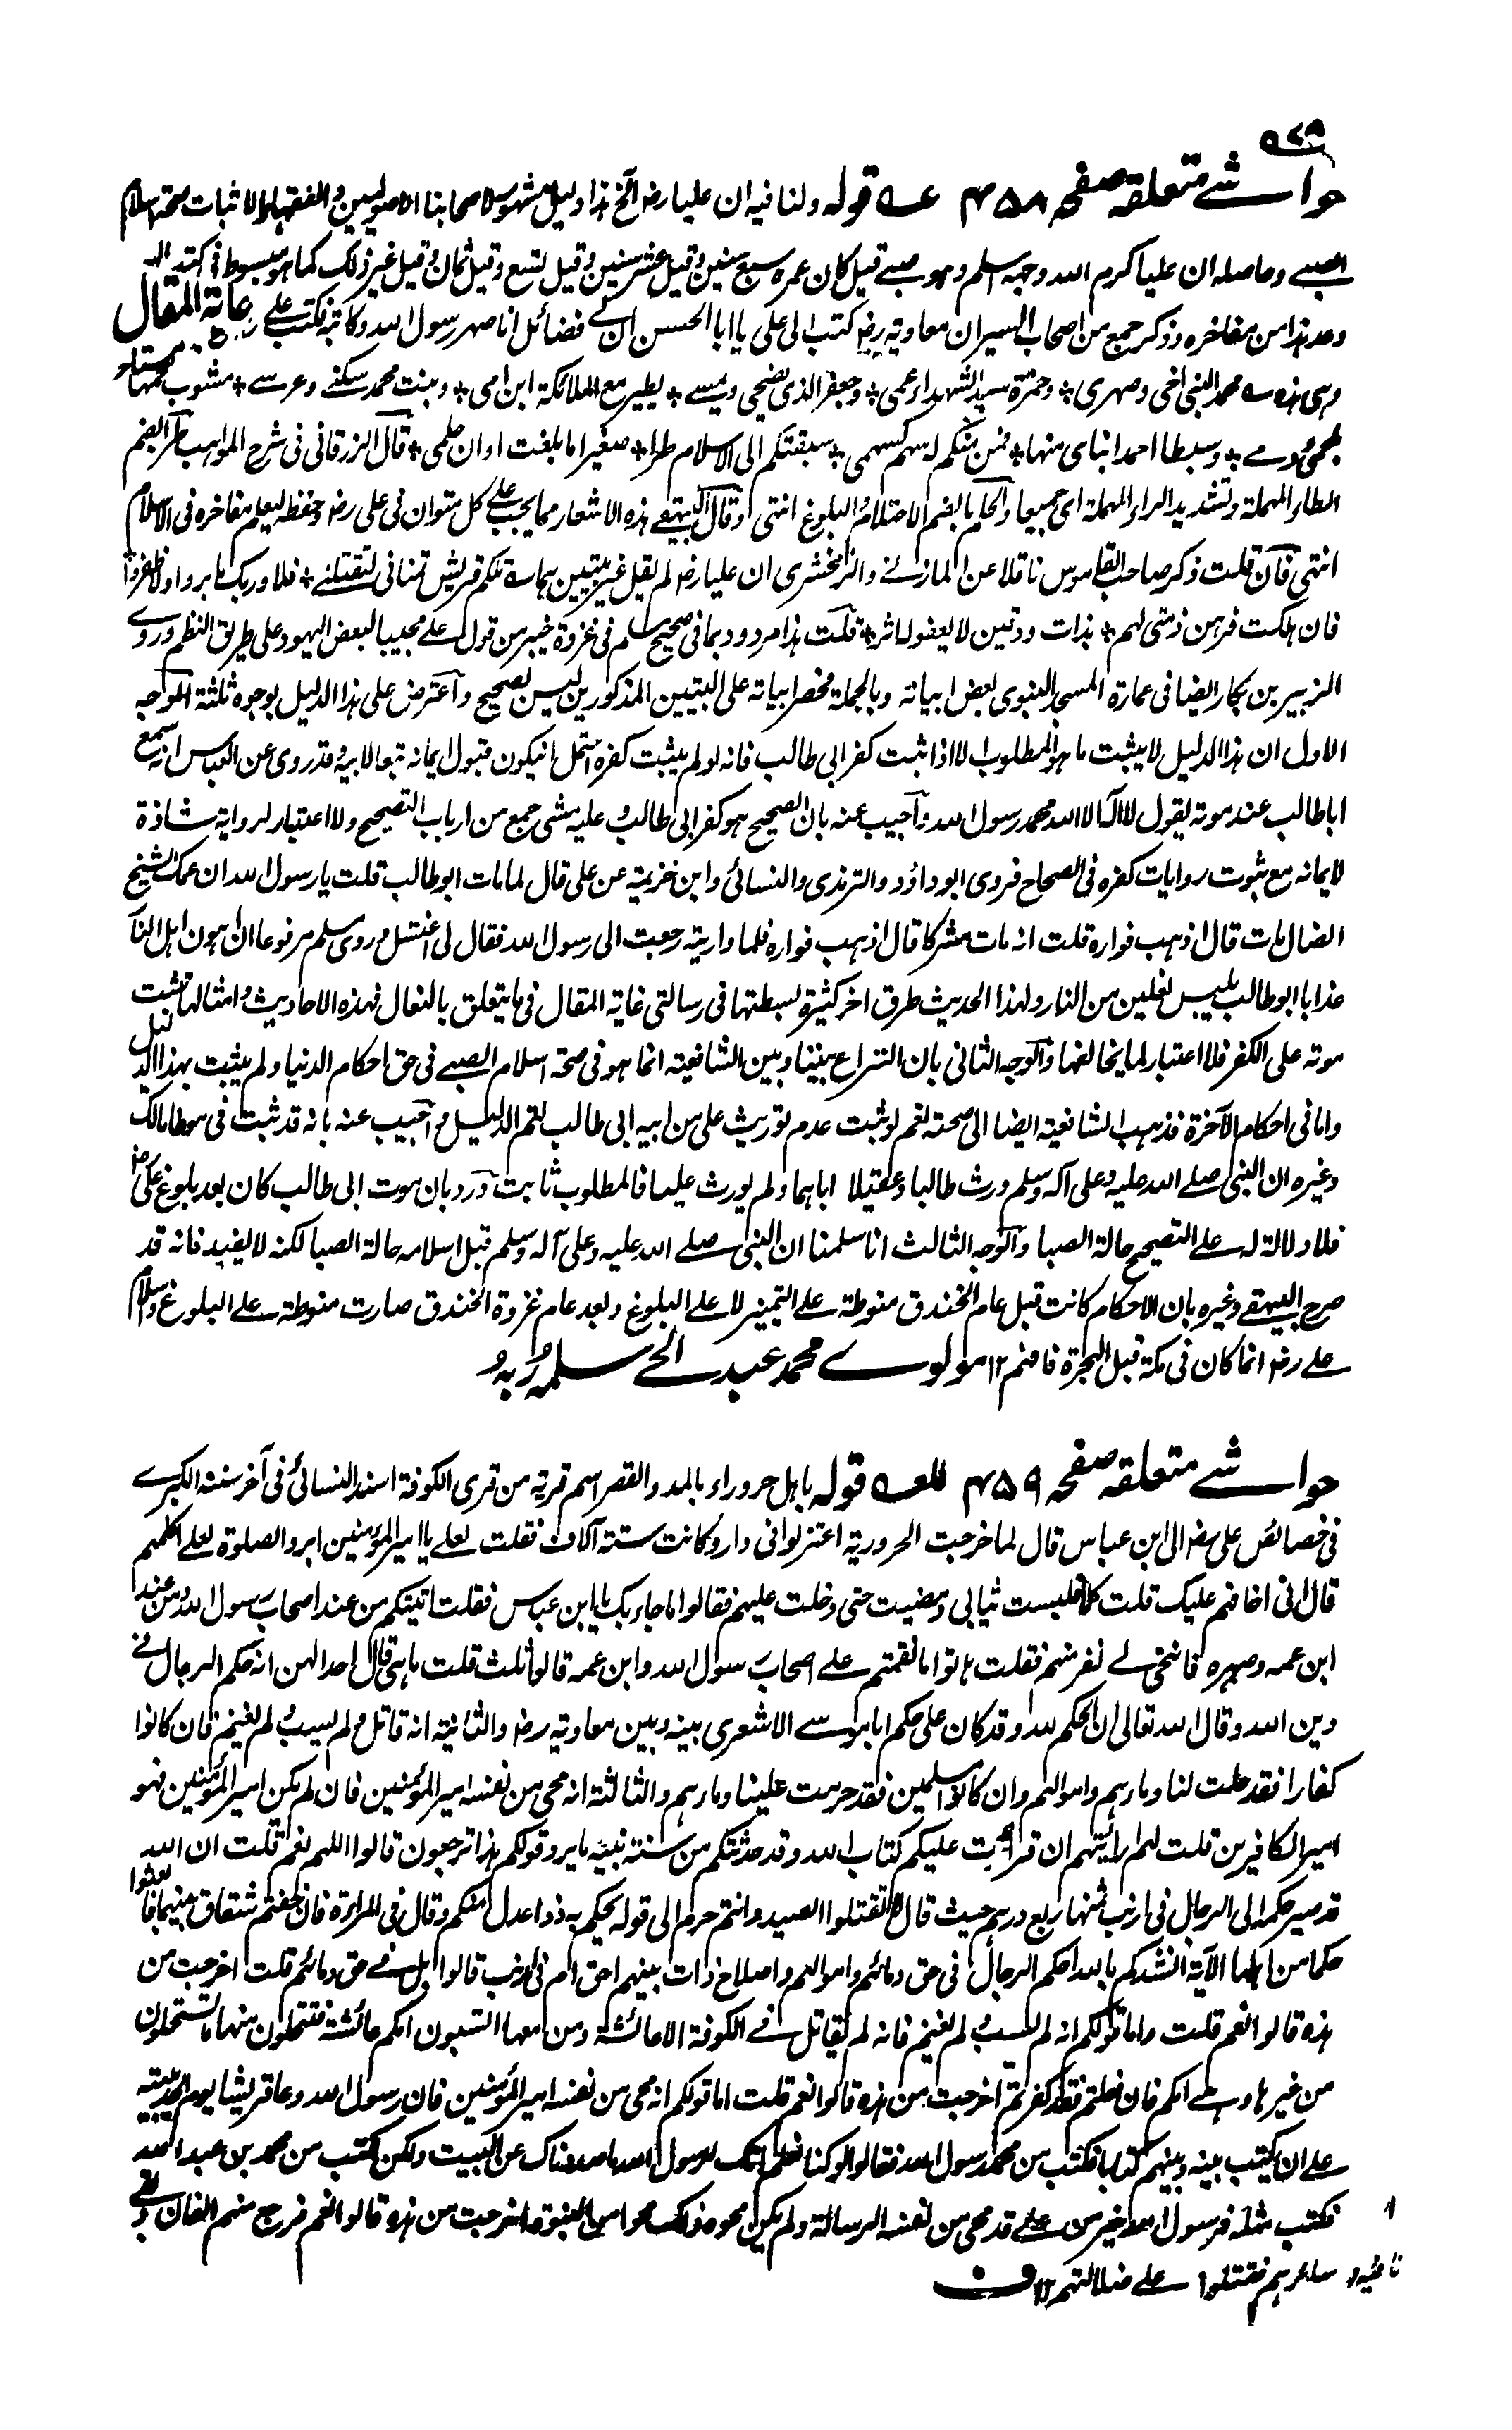 ٩٤٩
حواشے متعلقہ صفحہ ٤٥٨ م عہ قولہ ولنا فیہ ان علیا رضہ آلخ ہذا دلیل مشہور لاصحابنا الاصولیین والفقہاء لاثبات صحة اسلام
الصبے وحاصلہ ان علیا کرم اللہ وجہہ اسلم وہو صبے قیل کان عمرہ سبع سنین وقیل عشر سنین وقیل تسع وقیل ثمان وقیل غیر ذلک کما ہو مبسوط فی کتب
وعد ہذا من مفاخرہ وذکر جمع من اصحاب السیر ان معاویة رضہ کتب الی علی یا ابا الحسن ان لے فضائل انا صہر رسول اللہ وکاتبہ فکتب علے
وہی ہذہ ؎ محمد النبی اخی وصہری * وحمزة سید الشہداء عمی * وجعفر الذی یضحی ویمسے * یطیر مع الملائکة ابن امی * وبنت محمد سکنے وعرسے * مشوب لحمہا
بدمی ولحمے * وسبطا احمد ابنای منہا * فمن منکم لہ سہم کسہمی * سبقتکم الی الاسلام طرا * صغیرا ما بلغت اوان حلمی * قال الزرقانی فی شرح المواہب طرا بضم
الطاء المہملة وتشدید الراء المہملة ای جمیعا والحلم بالضم الاحتلام والبلوغ انتہی وقال البیہقے ہذہ الاشعار مما یجب علے کل متوان فی علی رضہ حفظہ لیعلم مفاخرہ فی الاسلام
انتہی فان قلت ذکر صاحب القاموس ناقلا عن المازنے والزمخشری ان علیا رضہ لم یقل غیر بیتین ہما ؎ تلکم قریش تمنانی لتقتلنے * فلا وربک ما بروا ولا ظفروا
فان ہلکت فرہن ذمتی لہم * بذات ودقین لا یعفو لہا اثر * قلت ہذا مردود بما فی صحیح مسلم فی غزوة خیبر من قول علے مجیبا لبعض الیہود علی طریق النظم وروے
الزبیر بن بکار ایضا فی عمارة المسجد النبوی بعض ابیاتہ وبالجملة فحصر ابیاتہ علی البیتین المذکورین لیس بصحیح وآعترض علی ہذا الدلیل بوجوہ ثلثة آلوجہ
الاول ان ہذا الدلیل لا یثبت ما ہو المطلوب الا اذا ثبت کفر ابی طالب فانہ لو لم یثبت کفرہ احتمل ان یکون قبول ایمانہ تبعا لابیہ وقد روی عن العباس انہ سمع
ابا طالب عند موتہ یقول لا الہ الا اللہ محمد رسول اللہ وآجیب عنہ بان الصحیح ہو کفر ابی طالب وعلیہ مشی جمع من ارباب التصحیح ولا اعتبار لروایة شاذة
لایمانہ مع ثبوت روایات کفرہ فی الصحاح فروی ابو داؤد والترمذی والنسائی وابن خزیمة عن علی قال لما مات ابو طالب قلت یا رسول اللہ ان عمک الشیخ
الضال مات قال اذہب فوارہ قلت انہ مات مشرکا قال اذہب فوارہ فلما واریتہ رجعت الی رسول اللہ فقال لی اغتسل وروی مسلم مرفوعا ان اہون اہل النار
عذابا ابو طالب یلبس نعلین من النار ولہذا الحدیث طرق اخر کثیرة بسطتہا فی رسالتی غایة المقال فی ما یتعلق بالنعال فہذہ الاحادیث وامثالہا تثبت
موتہ علی الکفر فلا اعتبار لما یخالفہا وآلوجہ الثانی بان النزاع بیننا وبین الشافعیة انما ہو فی صحة اسلام الصبے فی حق احکام الدنیا ولم یثبت بہذا الدلیل
واما فی احکام الآخرة فذہب الشافعیة ایضا الی صحتہ نعم لو ثبت عدم توریث علی من ابیہ ابی طالب لتم الدلیل وآجیب عنہ بانہ قد ثبت فی موطا مالک
وغیرہ ان النبی صلے اللہ علیہ وعلی آلہ وسلم ورث طالبا وعقیلا اباہما ولم یورث علیا فالمطلوب ثابت ورد بان موت ابی طالب کان بعد بلوغ علی رضہ
فلا دلالة لہ علے التصحیح حالة الصبا وآلوجہ الثالث انا سلمنا ان النبی صلے اللہ علیہ وعلی آلہ وسلم قبل اسلامہ حالة الصبا لکنہ لا یفید فانہ قد
صرح البیہقے وغیرہ بان الاحکام کانت قبل عام الخندق منوطة علے التمییز لا علے البلوغ وبعد عام غزوة الخندق صارت منوطة علے البلوغ واسلام
علے رضہ انما کان فی مکة قبل الہجرة فافہم ١٢ مولوے محمد عبد الحے سلمہ ربہ
غایة المقال
حواشے متعلقہ صفحہ ٤٥٩ م للعہ قولہ باہل حروراء بالمد والقصر اسم قریة من قری الکوفة اسند النسائی فی آخر سننہ الکبرے
فی خصائص علی رضہ الی ابن عباس قال لما خرجت الحروریة اعتزلوا فی دار وکانت ستة آلاف فقلت لعلے یا امیر المؤمنین ابرد الصلوة لعلے اکلمہم
قال انی اخافہم علیک قلت کلا فلبست ثیابی ومضیت حتی دخلت علیہم فقالوا ما جاء بک یا ابن عباس فقلت اتیتکم من عند اصحاب رسول اللہ ومن عند
ابن عمہ وصہرہ فانتحی لے نفر منہم فقلت ہاتوا ما نقمتم علے اصحاب رسول اللہ وابن عمہ قالوا ثلث قلت ما ہی قال احداہن انہ حکم الرجال فے
دین اللہ وقال اللہ تعالی ان الحکم للہ وقد کان علی حکم ابا موسے الاشعری بینہ وبین معاویة رضہ والثانیة انہ قاتل ولم یسب ولم یغنم فان کانوا
کفارا فقد حلت لنا دماءہم واموالہم وان کانوا مسلمین فقد حرمت علینا دماءہم والثالثة انہ محی من نفسہ امیر المؤمنین فان لم یکن امیر المؤمنین فہو
امیر الکافرین قلت لہم ارائیتم ان قرأت علیکم کتاب اللہ وقد حدثتکم من سنة نبیہ ما یرد قولکم ہذا ترجعون قالوا اللہم نعم قلت ان اللہ
قد صیر حکمہ الی الرجال فی ارنب ثمنہا ربع درہم حیث قال لا تقتلوا الصید وانتم حرم الی قولہ یحکم بہ ذوا عدل منکم وقال فی المراءة فان خفتم شقاق بینہما فابعثوا
حکما من اہلہا الآیة انشدکم باللہ احکم الرجال فی حق دمائہم واموالہم واصلاح ذات بینہم احق ام فی ارنب قالوا بل فے حق دمائہم قلت اخرجت من
ہذہ قالوا نعم قلت واما قولکم انہ لم یسب ولم یغنم فانہ لم یقاتل فے الکوفة الا عائشة ومن معہا اتسبون امکم عائشة فتستحلون منہا ما تستحلون
من غیرہا وہے امکم فان فعلتم فقد کفرتم اخرجت من ہذہ قالوا نعم قلت اما قولکم انہ محی من نفسہ امیر المؤمنین فان رسول اللہ دعا قریشا یوم الحدیبیة
علے ان یکتب بینہ وبینہم کتابا فکتب من محمد رسول اللہ فقالوا لو کنا نعلم انک لرسول اللہ ما صددناک عن البیت ولکن اکتب من محمد بن عبد اللہ
فکتب فرسول اللہ خیر من علے قد محی من نفسہ الرسالة ولم یکن محوہ ذلک محوا من النبوة اخرجت من ہذہ قالوا نعم فرجع منہم الفان وبقے
سائرہم فقتلوا علے ضلالتہم ١٢ ف